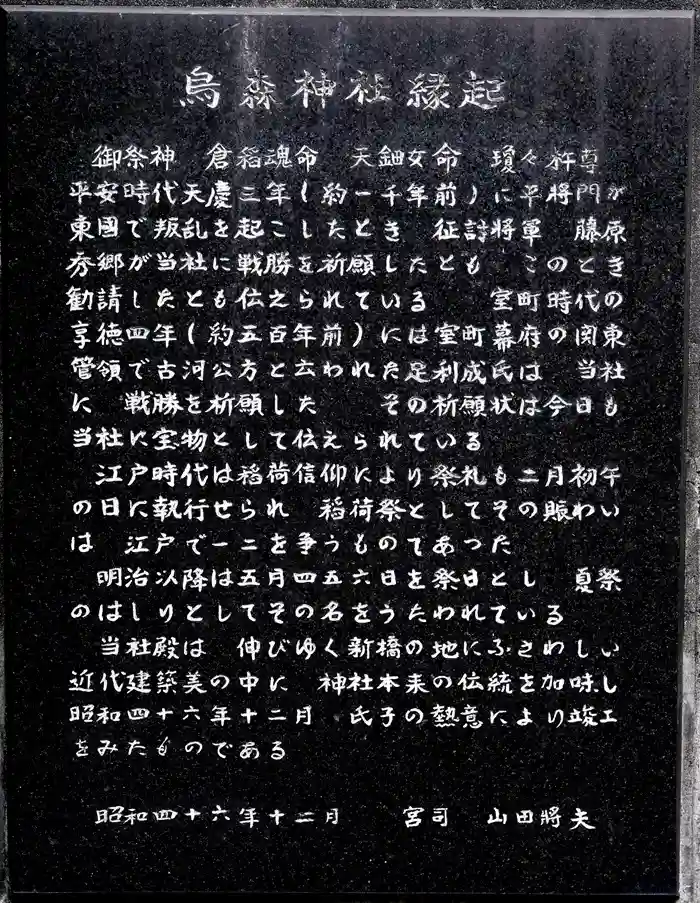 烏森神社縁起
御祭神　倉稲魂命　天鈿女命　瓊々杵尊
平安時代天慶三年(約一千年前)に平將門が
東國で叛乱を起こしたとき　征討將軍　藤原
秀郷が当社に戦勝を祈願したとも　このとき
勧請したとも伝えられている　　室町時代の
享徳四年(約五百年前)には室町幕府の関東
管領で古河公方と云われた足利成氏は　当社
に　戦勝を祈願した　　その祈願状は今日も
当社に宝物として伝えられている
江戸時代は稲荷信仰により祭礼も二月初午
の日に執行せられ　稲荷祭としてその賑わい
は　江戸で一二を争うものてあつた
明治以降は五月四五六日を祭日とし　夏祭
のはしりとしてその名をうたわれている
当社殿は　伸びゆく新橋の地にふさわしい
近代建築美の中に　神社本来の伝統を加味し
昭和四十六年十二月　氏子の熱意により竣工
をみたものである
昭和四十六年十二月　　宮司　山田將夫